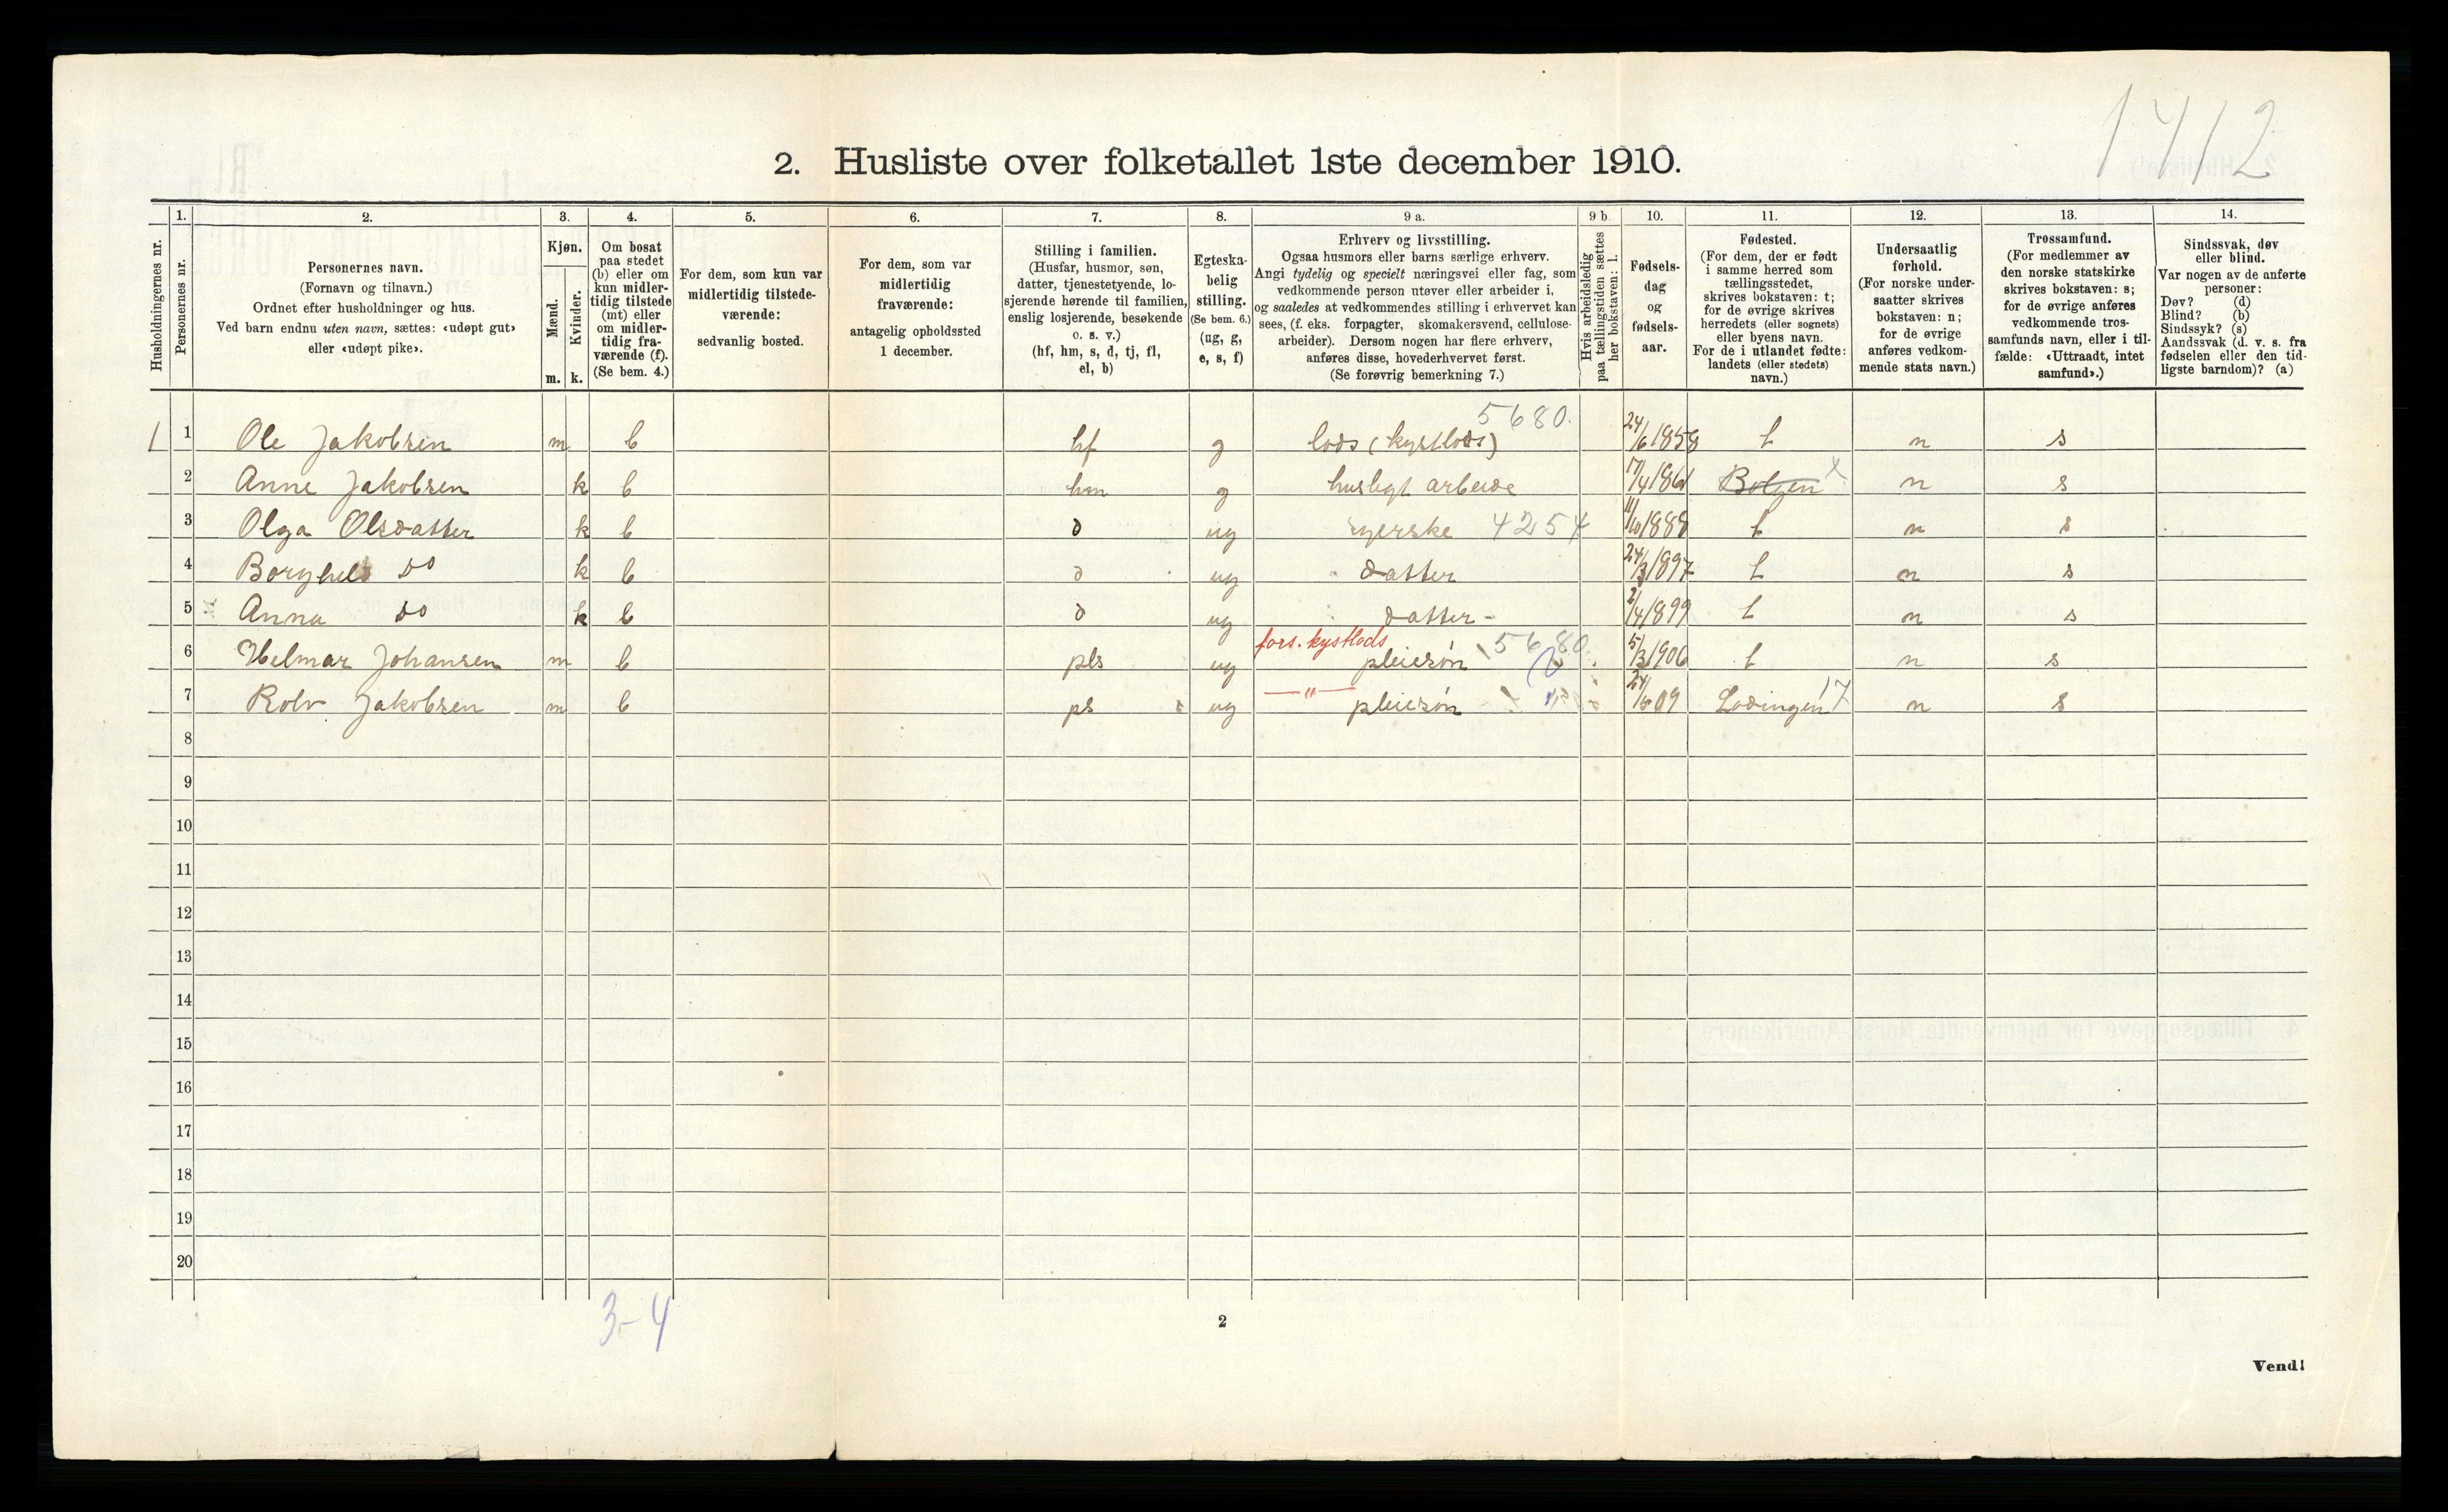 1412
2. Husliste over folketallet 1ste december 1910.
Husholdningernes nr.
1.
Personernes nr.
2.
Personernes navn.
(Fornavn og tilnavn.)
Ordnet efter husholdninger og hus.
Ved barn endnu uten navn, sættes: «udøpt gut»
eller «udøpt pike».
3.
Kjøn.
Mænd.
Kvinder.
m. k.
4.
Om bosat
paa stedet
(b) eller om
kun midler-
tidig tilstede
(mt) eller
om midler-
tidig fra-
værende (f).
(Se bem. 4.)
5.
For dem, som kun var
midlertidig tilstede-
værende:
sedvanlig bosted.
6.
For dem, som var
midlertidig
fraværende:
antagelig opholdssted
1 december.
7.
Stilling i familien.
(Husfar, husmor, søn,
datter, tjenestetyende, lo-
sjerende hørende til familien,
enslig losjerende, besøkende
o. s. v.)
(hf, hm, s, d, tj, fl,
el, b)
8.
Egteska-
belig
stilling.
(Se bem. 6.)
(ug, g,
e, s, f)
9 a.
Erhverv og livsstilling.
Ogsaa husmors eller barns særlige erhverv.
Angi tydelig og specielt næringsvei eller fag, som
vedkommende person utøver eller arbeider i,
og saaledes at vedkommendes stilling i erhvervet kan
sees, (f. eks. forpagter, skomakersvend, cellulose-
arbeider). Dersom nogen har flere erhverv,
anføres disse, hovederhvervet først.
(Se forøvrig bemerkning 7.)
9 b.
Hvis arbeidsledig
paa tællingstiden sættes
her bokstaven: l.
10.
Fødsels-
dag
og
fødsels-
aar.
11.
Fødested.
(For dem, der er født
i samme herred som
tællingsstedet,
skrives bokstaven: t;
for de øvrige skrives
herredets (eller sognets)
eller byens navn.
For de i utlandet fødte:
landets (eller stedets)
navn.)
12.
Undersaatlig
forhold.
(For norske under-
saatter skrives
bokstaven: n;
for de øvrige
anføres vedkom-
mende stats navn.)
13.
Trossamfund.
(For medlemmer av
den norske statskirke
skrives bokstaven: s;
for de øvrige anføres
vedkommende tros-
samfunds navn, eller i til-
fælde: «Uttraadt, intet
samfund».)
14.
Sindssvak, døv
eller blind.
Var nogen av de anførte
personer:
Døv? (d)
Blind? (b)
Sindssyk? (s)
Aandssvak (d. v. s. fra
fødselen eller den tid-
ligste barndom)? (a)
5680.
1 1 Ole Jakobsen m b hf g lods (kystlods) 24/6 1858 t n s
2 Anne Jakobsen k b hm g husligt arbeide 17/4 1861 n s
3 Olga Olsdatter k b d ug syerske 4254 11/10 1888 t n s
4 Borghild do k b d ug datter 24/3 1897 t n s
5 Anna do k b d ug datter 2/4 1899 t n s
fors. kystlods
6 Helmar Johansen m b pls ug pleiesøn 5680 5/3 1906 t n s
7 Rolv Jakobsen m b ps ug —"— pleiesøn 09 Lødingen 17 n s
8
9
10
11
12
13
14
15
16
17
18
19
20
3-4
2
Vend!